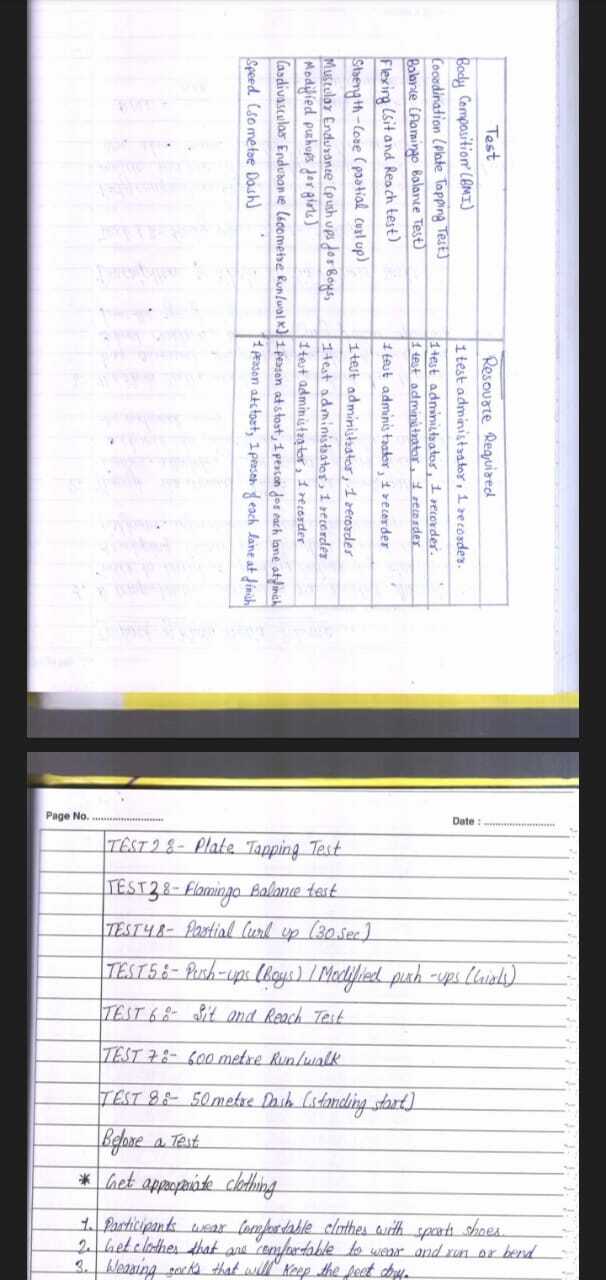 Test Resource Required
Body Composition (BMI) 1 test administrator, 1 recorder.
Coordination (Plate Tapping Test) 1 test administrator, 1 recorder.
Balance (Flamingo Balance Test) 1 test administrator, 1 recorder
Flexing (Sit and Reach test) 1 test administrator, 1 recorder
Strength - Core (partial curl up) 1 test administrator, 1 recorder
Muscular Endurance (push ups for Boys, 1 test administrator, 1 recorder
Modified pushups for girls) 1 test administrator, 1 recorder
Cardivascular Endurance (600metre Run/walk) 1 person at start, 1 person for each lane at finish
Speed (50 metre Dash) 1 person at start, 1 person of each lane at finish
Page No. ........................ Date : ........................
TEST 2 :- Plate Tapping Test
TEST 3 :- Flamingo Balance test
TEST 4 :- Partial Curl up (30 sec)
TEST 5 :- Push-ups (Boys) / Modified push-ups (Girls)
TEST 6 :- Sit and Reach Test
TEST 7 :- 600 metre Run/walk
TEST 8 :- 50 metre Dash (standing start)
Before a Test
* Get appropriate clothing
1. Participants wear comfortable clothes with sports shoes.
2. Get clothes that are comfortable to wear and run or bend
3. Wearing socks that will keep the feet dry.